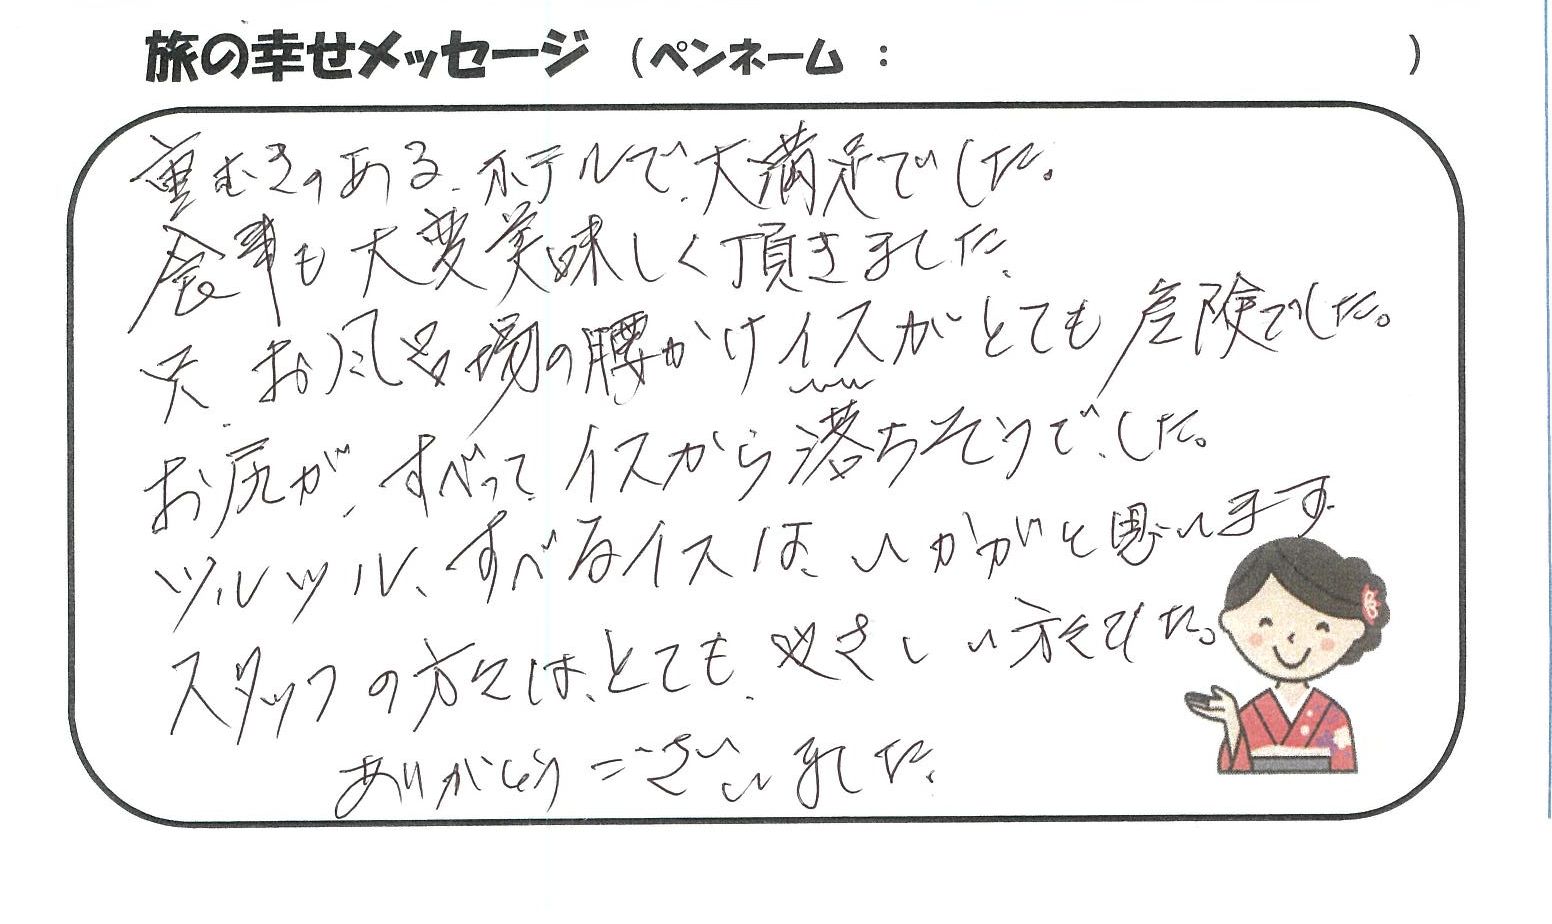 旅の幸せメッセージ (ペンネーム : )
重むきのある、ホテルで、大満足でした。
食事も大変美味しく頂きました。
只、お風呂場の腰かけイスがとても危険でした。
お尻が、すべって、イスから落ちそうでした。
ツルツル、すべるイスは、いかがと思います。
スタッフの方々は、とても、やさしい方々でした。
ありがとうございました。